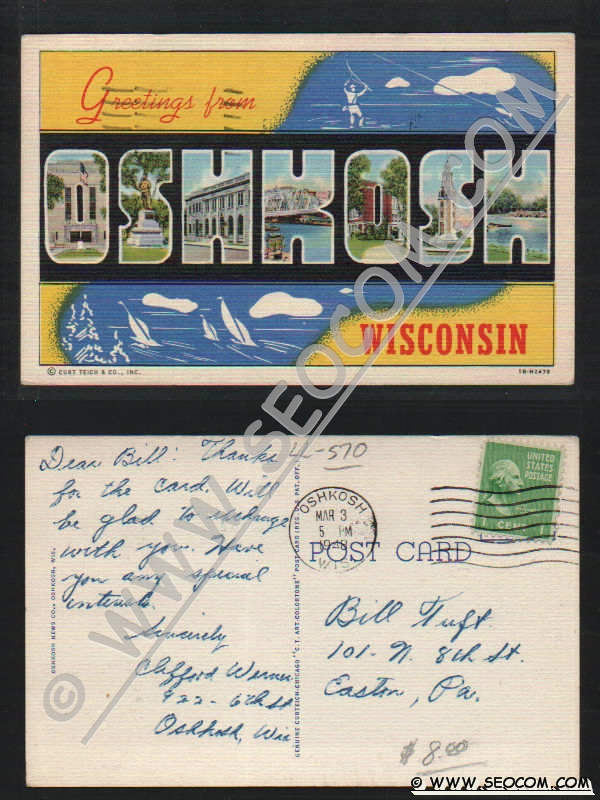 Greetings from
OSHKOSH
WISCONSIN
© CURT TEICH & CO., INC.
1B-H2479
© WWW.SEOCOM.COM
Dear Bill: Thanks
for the card. Will
be glad to exchange
with you. Have
you any special
interests.
Sincerely
Clifford Werner
922- 6th St
Oshkosh, Wis
LL-570
OSHKOSH NEWS CO., OSHKOSH, WIS.
GENUINE CURTEICH-CHICAGO "C.T. ART-COLORTONE" POST CARD (REG. U.S. PAT. OFF.)
OSHKOSH
MAR 3
5 PM
1948
WIS.
UNITED
STATES
POSTAGE
1 CENT 1
POST CARD
Bill Tuft
101- N. 8th St.
Easton, Pa.
$ 8.00
© WWW.SEOCOM.COM